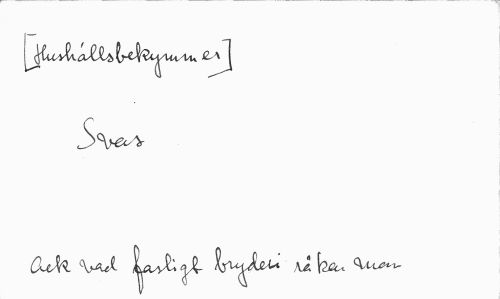 [Hushållsbekymmer]
Svas
Ack vad farligt bryderi råkar man